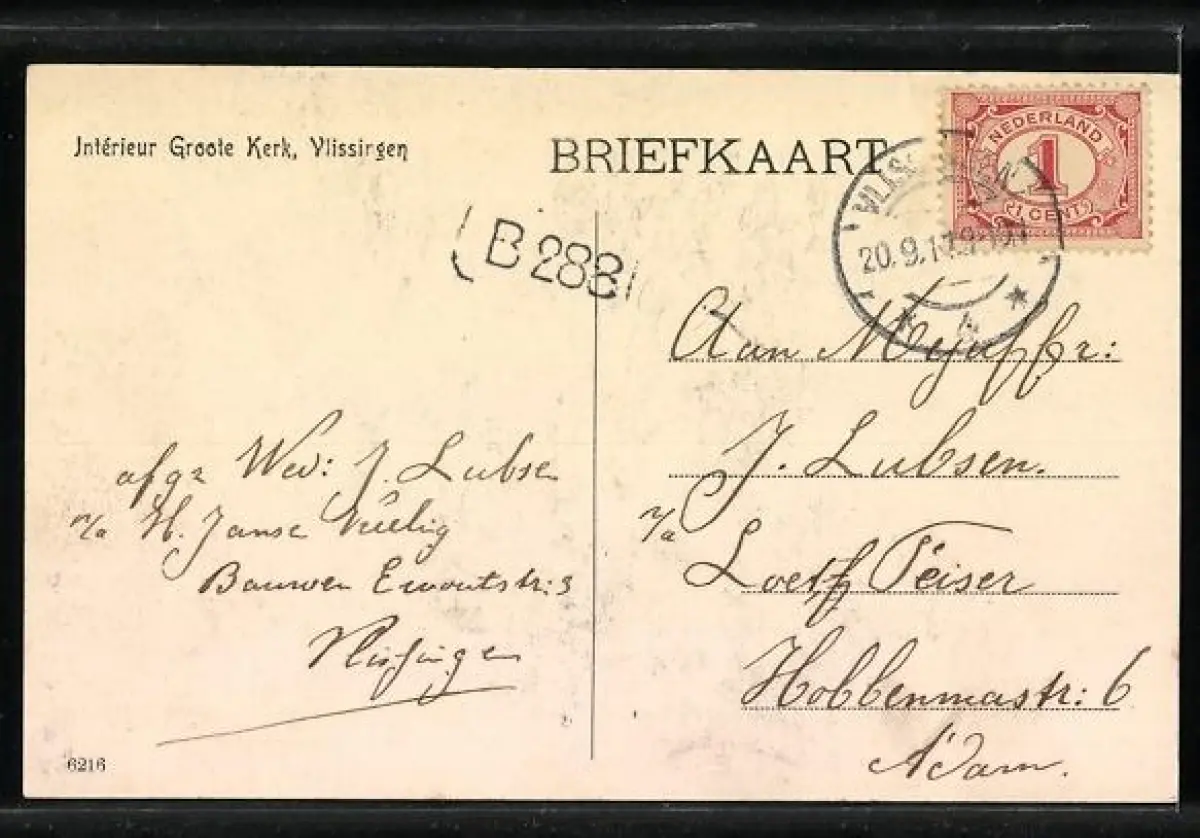 Intérieur Groote Kerk, Vlissingen
BRIEFKAART
NEDERLAND
1
1 CENT
VLISS
20.9.1
B 288
Aan Mejuffr:
J. Lubsen.
p/a
Loeff Teiser
Hobbemastr: 6
A'dam.
afgr Wed: J. Lubsen
p/a H. Janse
Bouwen Ewoutstr: 3
Vlissingen
6216